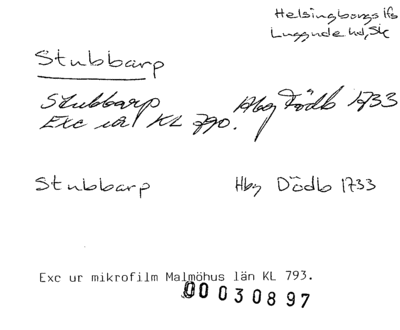 Helsingborgs lfs
Luggude hd, Sk
Stubbarp
Stubbarp Hbg Dödb 1733
Exc ur KL 790.
Stubbarp Hbg Dödb 1733
Exc ur mikrofilm Malmöhus län KL 793.
00030897